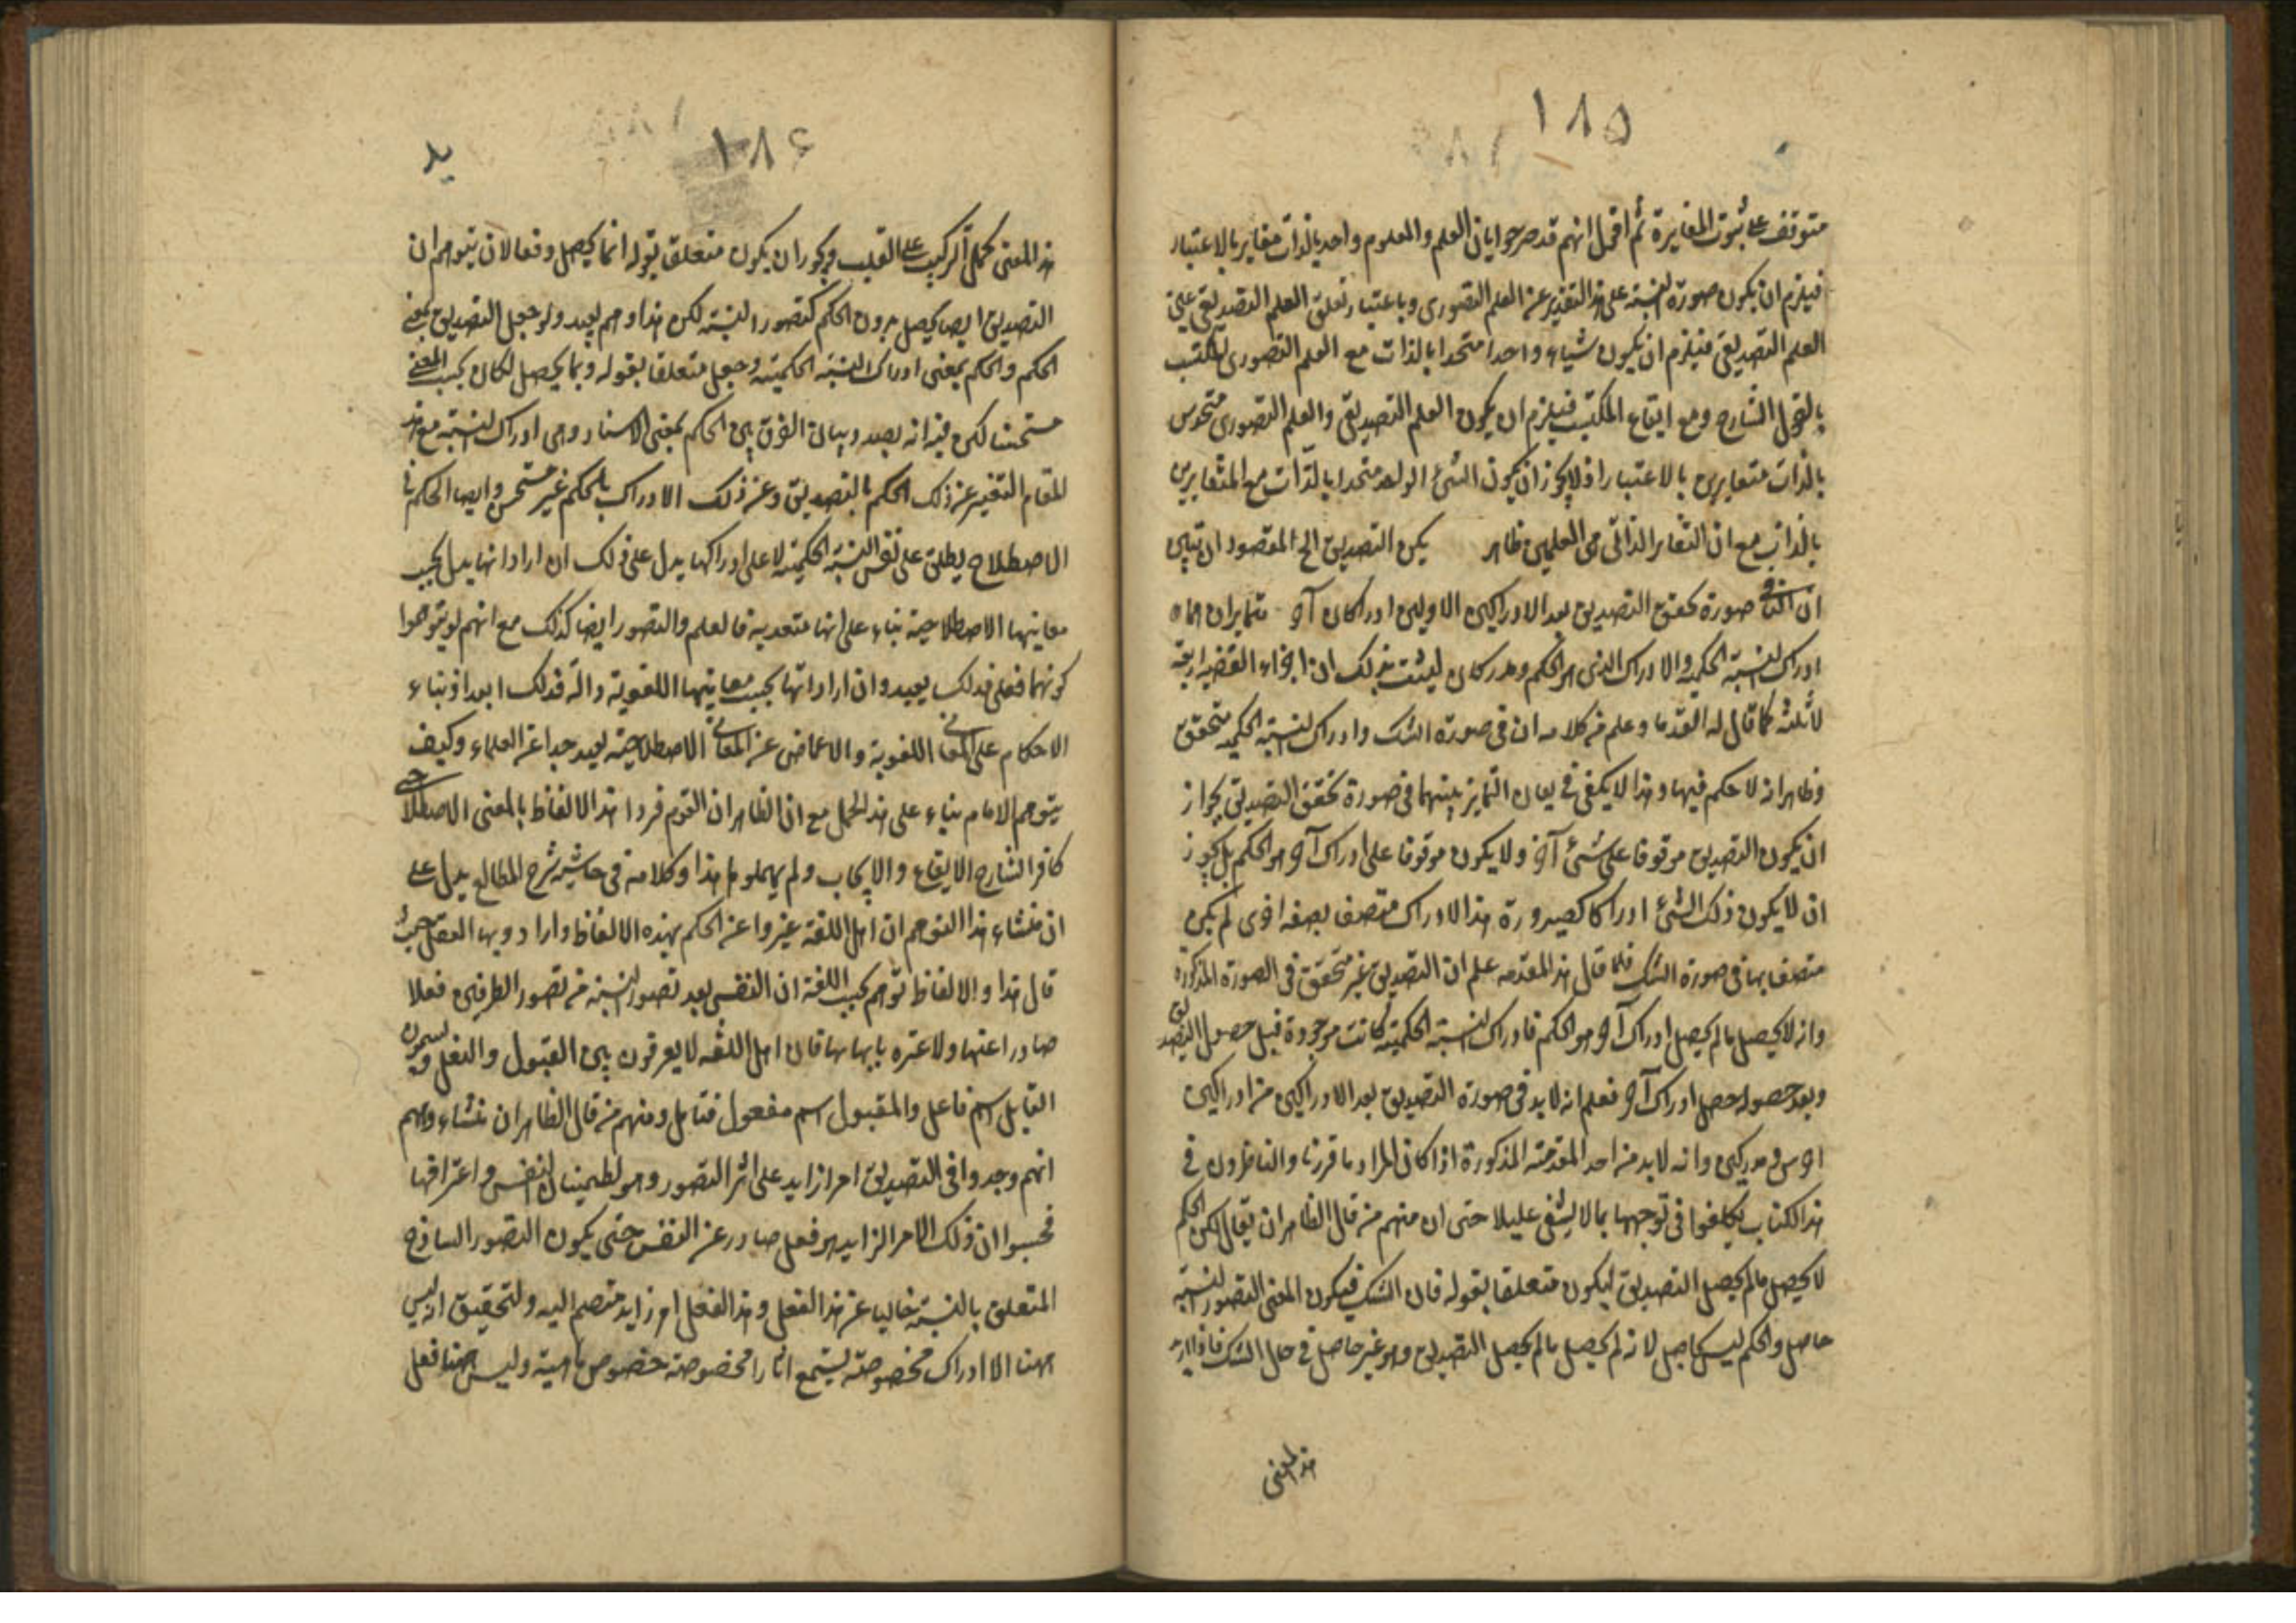 ١٨٥
متوقف على ثبوت المغايرة ثم اقول انهم قد صرحوا بان العلم والمعلوم واحد بالذات مغاير بالاعتبار
فيلزم ان يكون صورة النسبة على هذا التقدير عن العلم التصوري وباعتبار تعلق العلم التصديقي عين
العلم التصديقي فيلزم ان يكون شياء واحدا متحدا بالذات مع العلم التصوري المكتسب
بالقول الشارح ومع ايقاع المكتسب فيلزم ان يكون العلم التصديقي والعلم التصوري متحدين
بالذات متغايرين بالاعتبار اذ لا يجوز ان يكون الشئ الواحد متحدا بالذات مع المتغايرين
بالذات مع ان التغاير الذاتي بين العلمين ظاهر يكن التصديق الخ المقصود ان تبين
ان الثاني صورة تحقق التصديق بعد الادراكين الاولين ادراكان آخر متمايزان هما
ادراك النسبة الحكمية والادراك الذي هو الحكم ومدركان ليثبت بذلك ان اجزاء القضية اربعة
لا ثلثة كما قال له القدما وعلم من كلامه ان في صورة الشك وادراك النسبة الحكمية متحقق
وظاهر انه لا حكم فيها وهذا لا يكفي في بيان التمايز بينهما في صورة تحقق التصديق بجواز
ان يكون التصديق موقوفا على شئ آخر ولا يكون موقوفا على ادراك آخر هو الحكم بل يجوز
ان لا يكون ذلك الشئ ادراكا كصيرورة هذا الادراك متصف بصفة اخرى لم يكن
متصف بها في صورة الشك فلما قال هذ المقدمه علم ان التصديق غير متحقق في الصورة المذكورة
وانه لا يحصل ما لم يحصل ادراك آخر هو الحكم فادراك النسبة الحكمية كانت موجودة قبل حصول التصديق
وبعد حصوله حصل ادراك آخر فعلم انه لا بد في صورة التصديق بعد الادراكين من ادراكين
اخرين مدركين وانه لا بد من احد المقدمته المذكورة اذا كان المراد ما قررنا والناظرون في
هذا الكتاب تكلفوا في توجيهها بما لا يشفى عليلا حتى ان منهم من قال الظاهر ان يقال لكن الحكم
لا يحصل ما لم يحصل التصديق ليكون متعلقا بقوله فان الشك فيكون المعنى التصور النسبة
حاصل والحكم ليس بحاصل لانه لم يحصل ما لم يحصل التصديق وهو غير حاصل في حال الشك
هذ المعنى
١٨٦
يد
هذ المعنى يحمل التركيب على القلب ويجوز ان يكون متعلق بقوله انما يحصل دفعا لان يتوهم ان
التصديق ايضا يحصل بدون الحكم كتصور النسبة لكن هذا وهم بعيد ولو جعل التصديق بمعنى
الحكم والحكم بمعنى ادراك النسبة الحكمية وجعل متعلقا بقوله وبما يحصل لكان بحسب المعنى
مستحسنا لكن فيه انه بصدد بيان الفرق بين الحكم بمعنى الاسناد وبين ادراك النسبة مع هذ
المقام التعبير عن ذلك الحكم بالتصديق وعن ذلك الادراك بالحكم غير مستحسن وايضا الحكم في
الاصطلاح يطلق على نفس النسبة الحكمية لا على ادراكها يدل على ذلك ان اراد انها يدل بحسب
معانيها الاصطلاحية بناء على انها متعدية فالعلم والتصور ايضا كذلك مع انهم لو يتوهموا
كونهما فعلى فذلك بعيد وان اراد انها بحسب معانيها اللغوية دالة فذلك ابعد اذ بناء
الاحكام على المعاني اللغوية والاغماض عن المعاني الاصطلاحية بعيد جدا عن العلماء وكيف
يتوهم الامام بناء على هذ الحمل مع ان الظاهر ان القوم فسروا هذ الالفاظ بالمعنى الاصطلاحي
كما فسر الشارح الايقاع والايجاب ولم يهملوها هذا وكلامه في حاشية شرح المطالع يدل على
ان منشاء هذا التوهم ان اهل اللغة عبروا عن الحكم بهذه الالفاظ وارادوا بها الفعل حيث
قال هذا والالفاظ توهم بحسب اللغة ان النفس بعد تصور النسبة من تصور الطرفين فعلا
صادرا عنها ولا عبرة بايهامها فان اهل اللغة لا يفرقون بين القبول والفعل ويسمون
القابل اسم فاعل والمقبول اسم مفعول فتامل ومنهم من قال الظاهر ان منشاء وهم
انهم وجدوا في التصديق امرا زايد على اثر التصور وهو لطمينان النفس واعترافها
فحسبوا ان ذلك الامر الزايد هو فعل صادر عن النفس حتى يكون التصور الساذج
المتعلق بالنسبة خاليا عن هذ الفعل وهذ الفعل امر زايد منضم اليه والتحقيق انه ليس
ههنا الا ادراك مخصوصة يستتبع اثارا مخصوصة خصوص ماهية وليس ههنا فعل